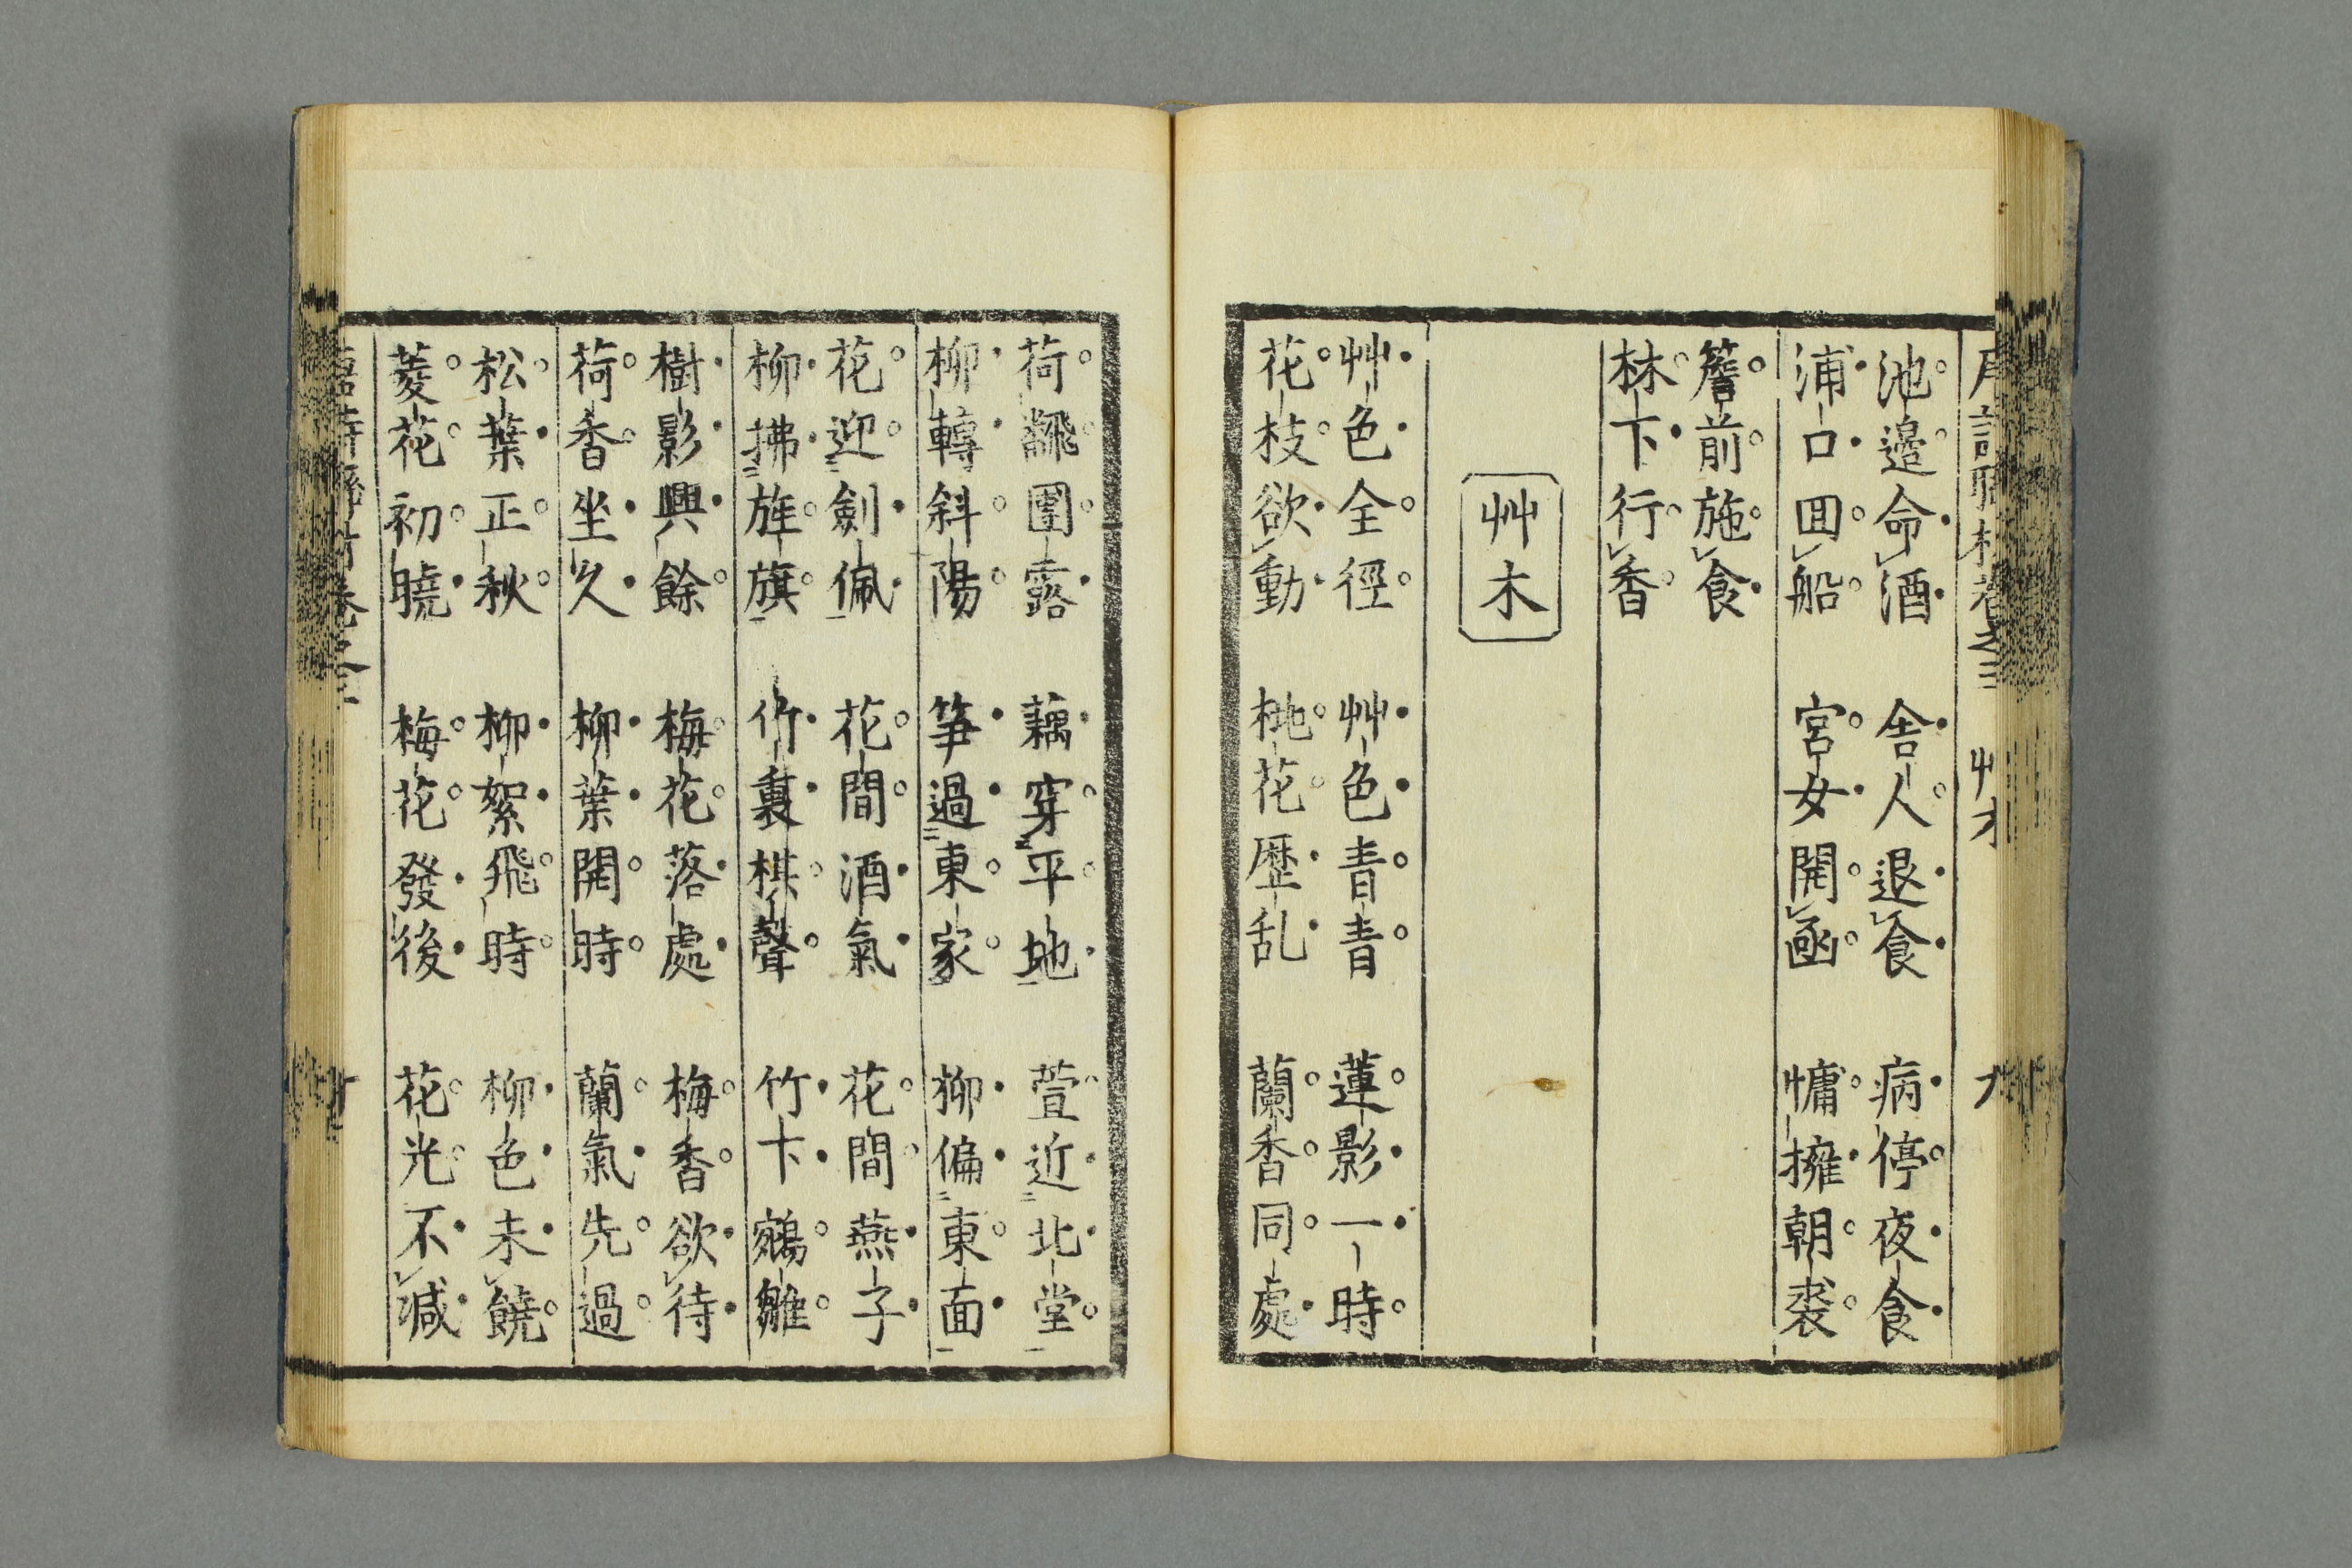 池邉命酒　舎人退食　病停夜食
浦口囬船　宮女開函　慵擁朝裘
簷前施食
林下行香
艸木
艸色全徑　艸色青青　蓮影一時
花枝欲動　桃花歴乱　蘭香同處
荷飜團露　藕穿平地　萱近北堂
柳轉斜陽　筍過東家　柳偏東面
花迎劍佩　花間酒氣　花間燕子
柳拂旌旗　竹裏棋聲　竹下鵷雛
樹影興餘　梅花落處　梅香欲待
荷香坐久　柳葉開時　蘭氣先過
松葉正秋　柳絮飛時　柳色未饒
菱花初曉　梅花發後　花光不減